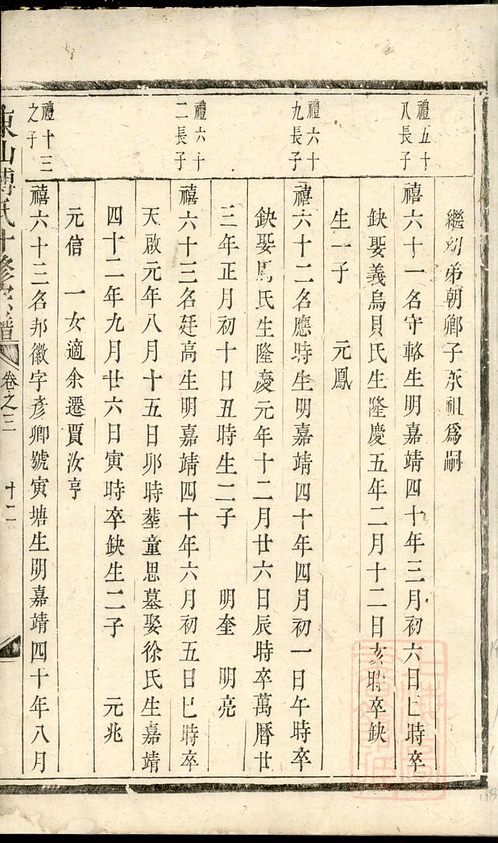 繼朝弟朝鄉子永祖爲嗣
禮五十八長子
禧六十一名守輅生明嘉靖四十年三月初六日巳時卒
缺娶義烏貝氏生隆慶五年二月十二日亥時卒缺
生一子 元鳳
禮六十九長子
禧六十二名應時生明嘉靖四十年四月初一日午時卒
缺娶馬氏生隆慶元年十二月廿六日辰時卒萬曆廿
三年正月初十日丑時生二子 明奎 明亮
禮六十二長子
禧六十三名廷高生明嘉靖四十年六月初五日巳時卒
天啟元年八月十五日卯時塟童思墓娶徐氏生嘉靖
四十二年九月廿六日寅時卒缺生二子 元兆
元信 一女適余遷賈汝亨
禮十三之子
禧六十三名邦徽字彥卿號寅塘生明嘉靖四十年八月
東山傅氏十修宗譜 卷之三 十二